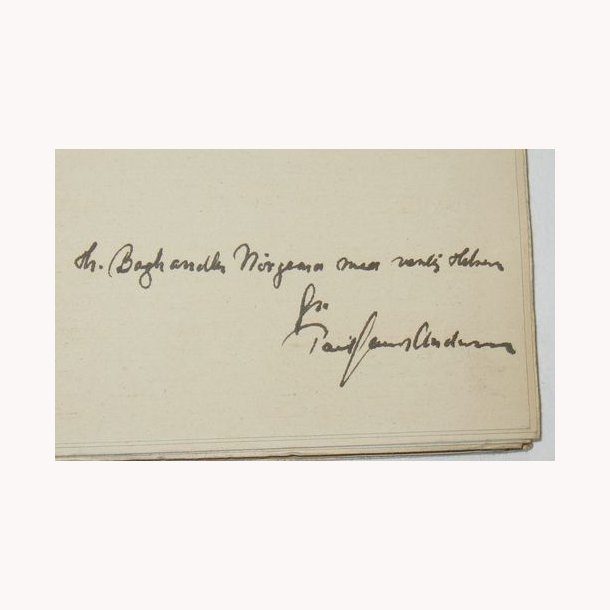 Hr. Boghandler Nörgaard med venlig Hilsen
fra
Poul Janus Andersen